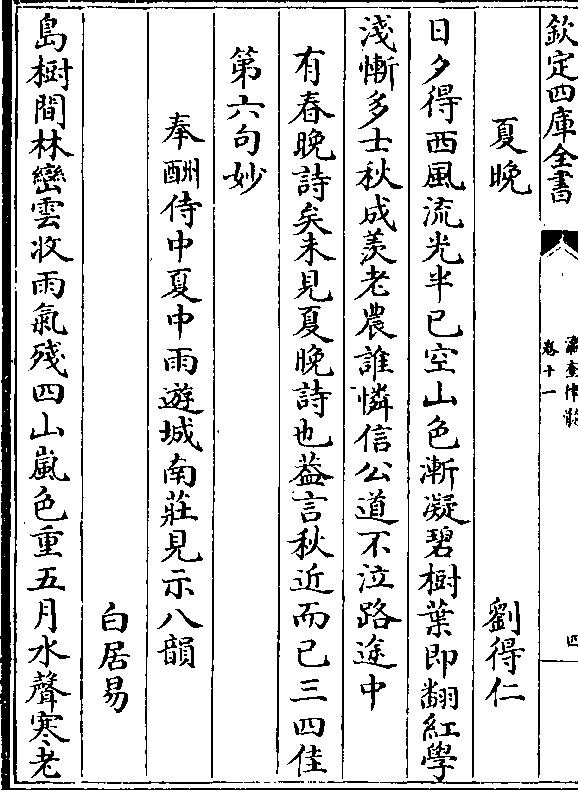 欽定四庫全書
瀛奎律髓
卷十一
四
夏晚
劉得仁
日夕得西風流光半已空山色漸凝碧樹葉即翻紅學
淺慚多士秋成羨老農誰憐信公道不泣路途中
有春晚詩矣未見夏晚詩也葢言秋近而已三四佳
第六句妙
奉酬侍中夏中雨遊城南莊見示八韻
白居易
島樹間林巒雲收雨氣殘四山嵐色重五月水聲寒老